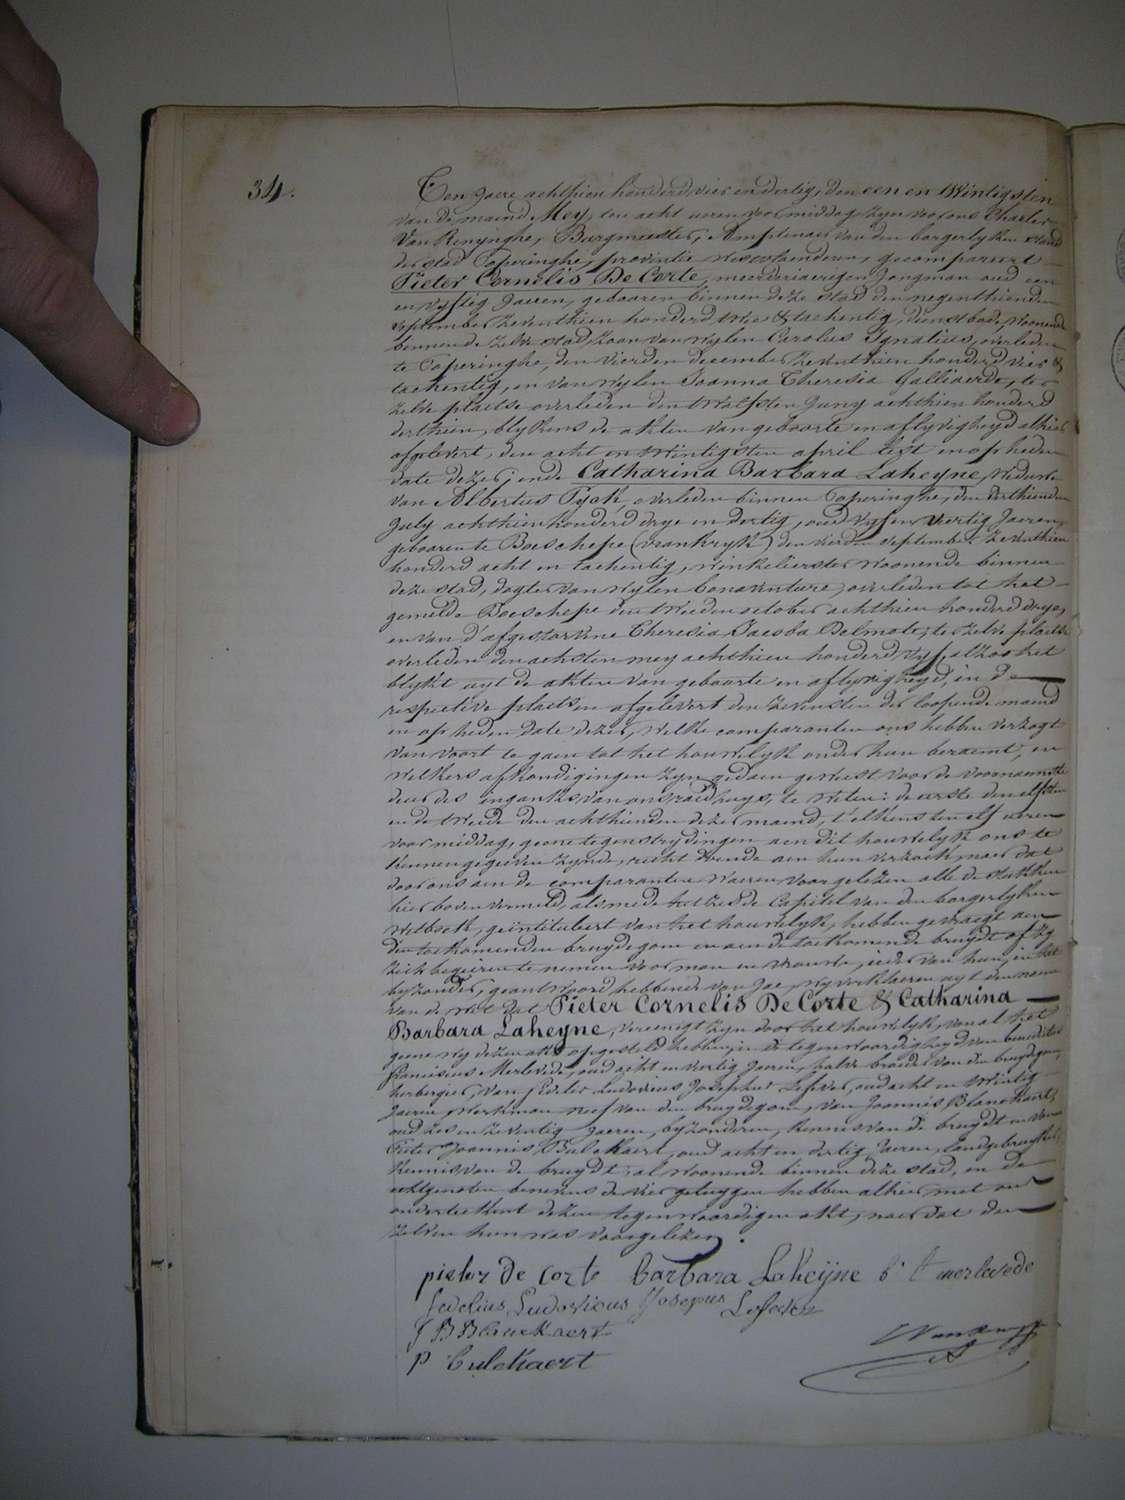 34.
Ten Jaere achthien honderd vier en dertig, den een en twintigsten
van de maend Mey, ten acht uren voor middag, zyn voor ons Charles
Van Renynghe, Burgmeester, Amptenaer van den borgerlyken stand
der stad Poperinghe, provintie Westvlaenderen, gecompareert
Pieter Cornelis De Corte, meerderjaerigen Jongman oud een
en vyftig Jaeren, gebooren binnen deze stad den negenthienden
september zeventhien honderd twee & tachentig, dienstbode, woonende
binnen de zelve stad, zoon van wylen Carolus Ignatius, overleden
te Poperinghe, den vierden december zeventhien honderd vier &
tachentig, en van wylen Joanna Theresia Galliaerde, te
zelve plaetse overleden den twalfsten Juny achthien honderd
derthien, blykens de akten van geboorte en aflyvigheyd alhier
afgelevert, den acht en twintigsten april lest en op heden
date dezer; ende Catharina Barbara Laheyne, weduwe
van Albertus Tyck, overleden binnen Poperinghe, den derthienden
July achthien honderd drye en dertig, oud vyf en veertig Jaeren,
gebooren te Boeschepe (vrankryk) den vierden september zeventhien
honderd acht en tachentig, winkelierster, woonende binnen
deze stad, dogter van wylen Bonaventure, overleden tot het
gemelde Boeschepe den tweeden october achthien honderd drye,
en van d'afgestorvene Theresia Jacoba Delmote, te zelve plaetse
overleden den achsten mey achthien honderd vyf, alzoo het
blykt uyt de akten van geboorte en aflyvigheyd, in de
respective plaetsen afgelevert den zevensten der loopende maend
en op heden date dezer, welke comparanten ons hebben verzogt
van voort te gaen tot het houwelyk onder hun beraemt, en
welkers afkondigingen zyn gedaen geweest voor de voornaemste
deur des ingank van ons raedhuys, te weten: de eerste den elfsten
en de tweede den achthienden dezer maend, t'elkens ten elf uren
voor middag, geene tegenstrydingen aen dit houwelyk ons te
kennen gegeven zynde, recht doende aen hun verzoek, naer dat
door ons aen de comparanten waeren voorgelezen alle de stukken
hier boven vermeld, als mede het zesde Capitel van den borgerlyken
wetboek, geintituleert van het houwelyk, hebben gevraegt aen
den toekomenden bruydegom en aen de toekomende bruydt of zy
zich begeeren te nemen voor man en vrouwe, ieder van hun, in het
byzonder, geantwoord hebbende van Jae, wy verklaeren uyt den naem
van de wet dat Pieter Cornelis De Corte & Catharina
Barbara Laheyne, vereenigt zyn door het houwelyk, van al het
geene wy dezen akt opgesteld hebben, in de tegenwoordigheyd van benedictus
franciscus Merlevede, oud acht en veertig Jaeren, halve broeder van den bruydegom,
herbergier, van Fidelis Ludovicus Josephus Lefever, oud acht en twintig
Jaeren, werkman, neef van den bruydegom, van Joannis Blanckaert,
oud zes en zeventig Jaeren, byzonderen, kennis van de bruydt en van
Pieter Joannis Bulckaert, oud acht en dertig Jaeren, landgebruyker,
kennis van de bruydt, al woonende binnen deze stad, en de
echtgenoten benevens de vier getuygen hebben alhier met ons
onderteekent dezen tegenwoordigen akt, naer dat den
zelven hun was voorgelezen.
pieter De corte barbara Laheijne b. f. merlevede
fedelius Ludovicus Josepus Lefever
J B Blanckaert
P Bulckaert